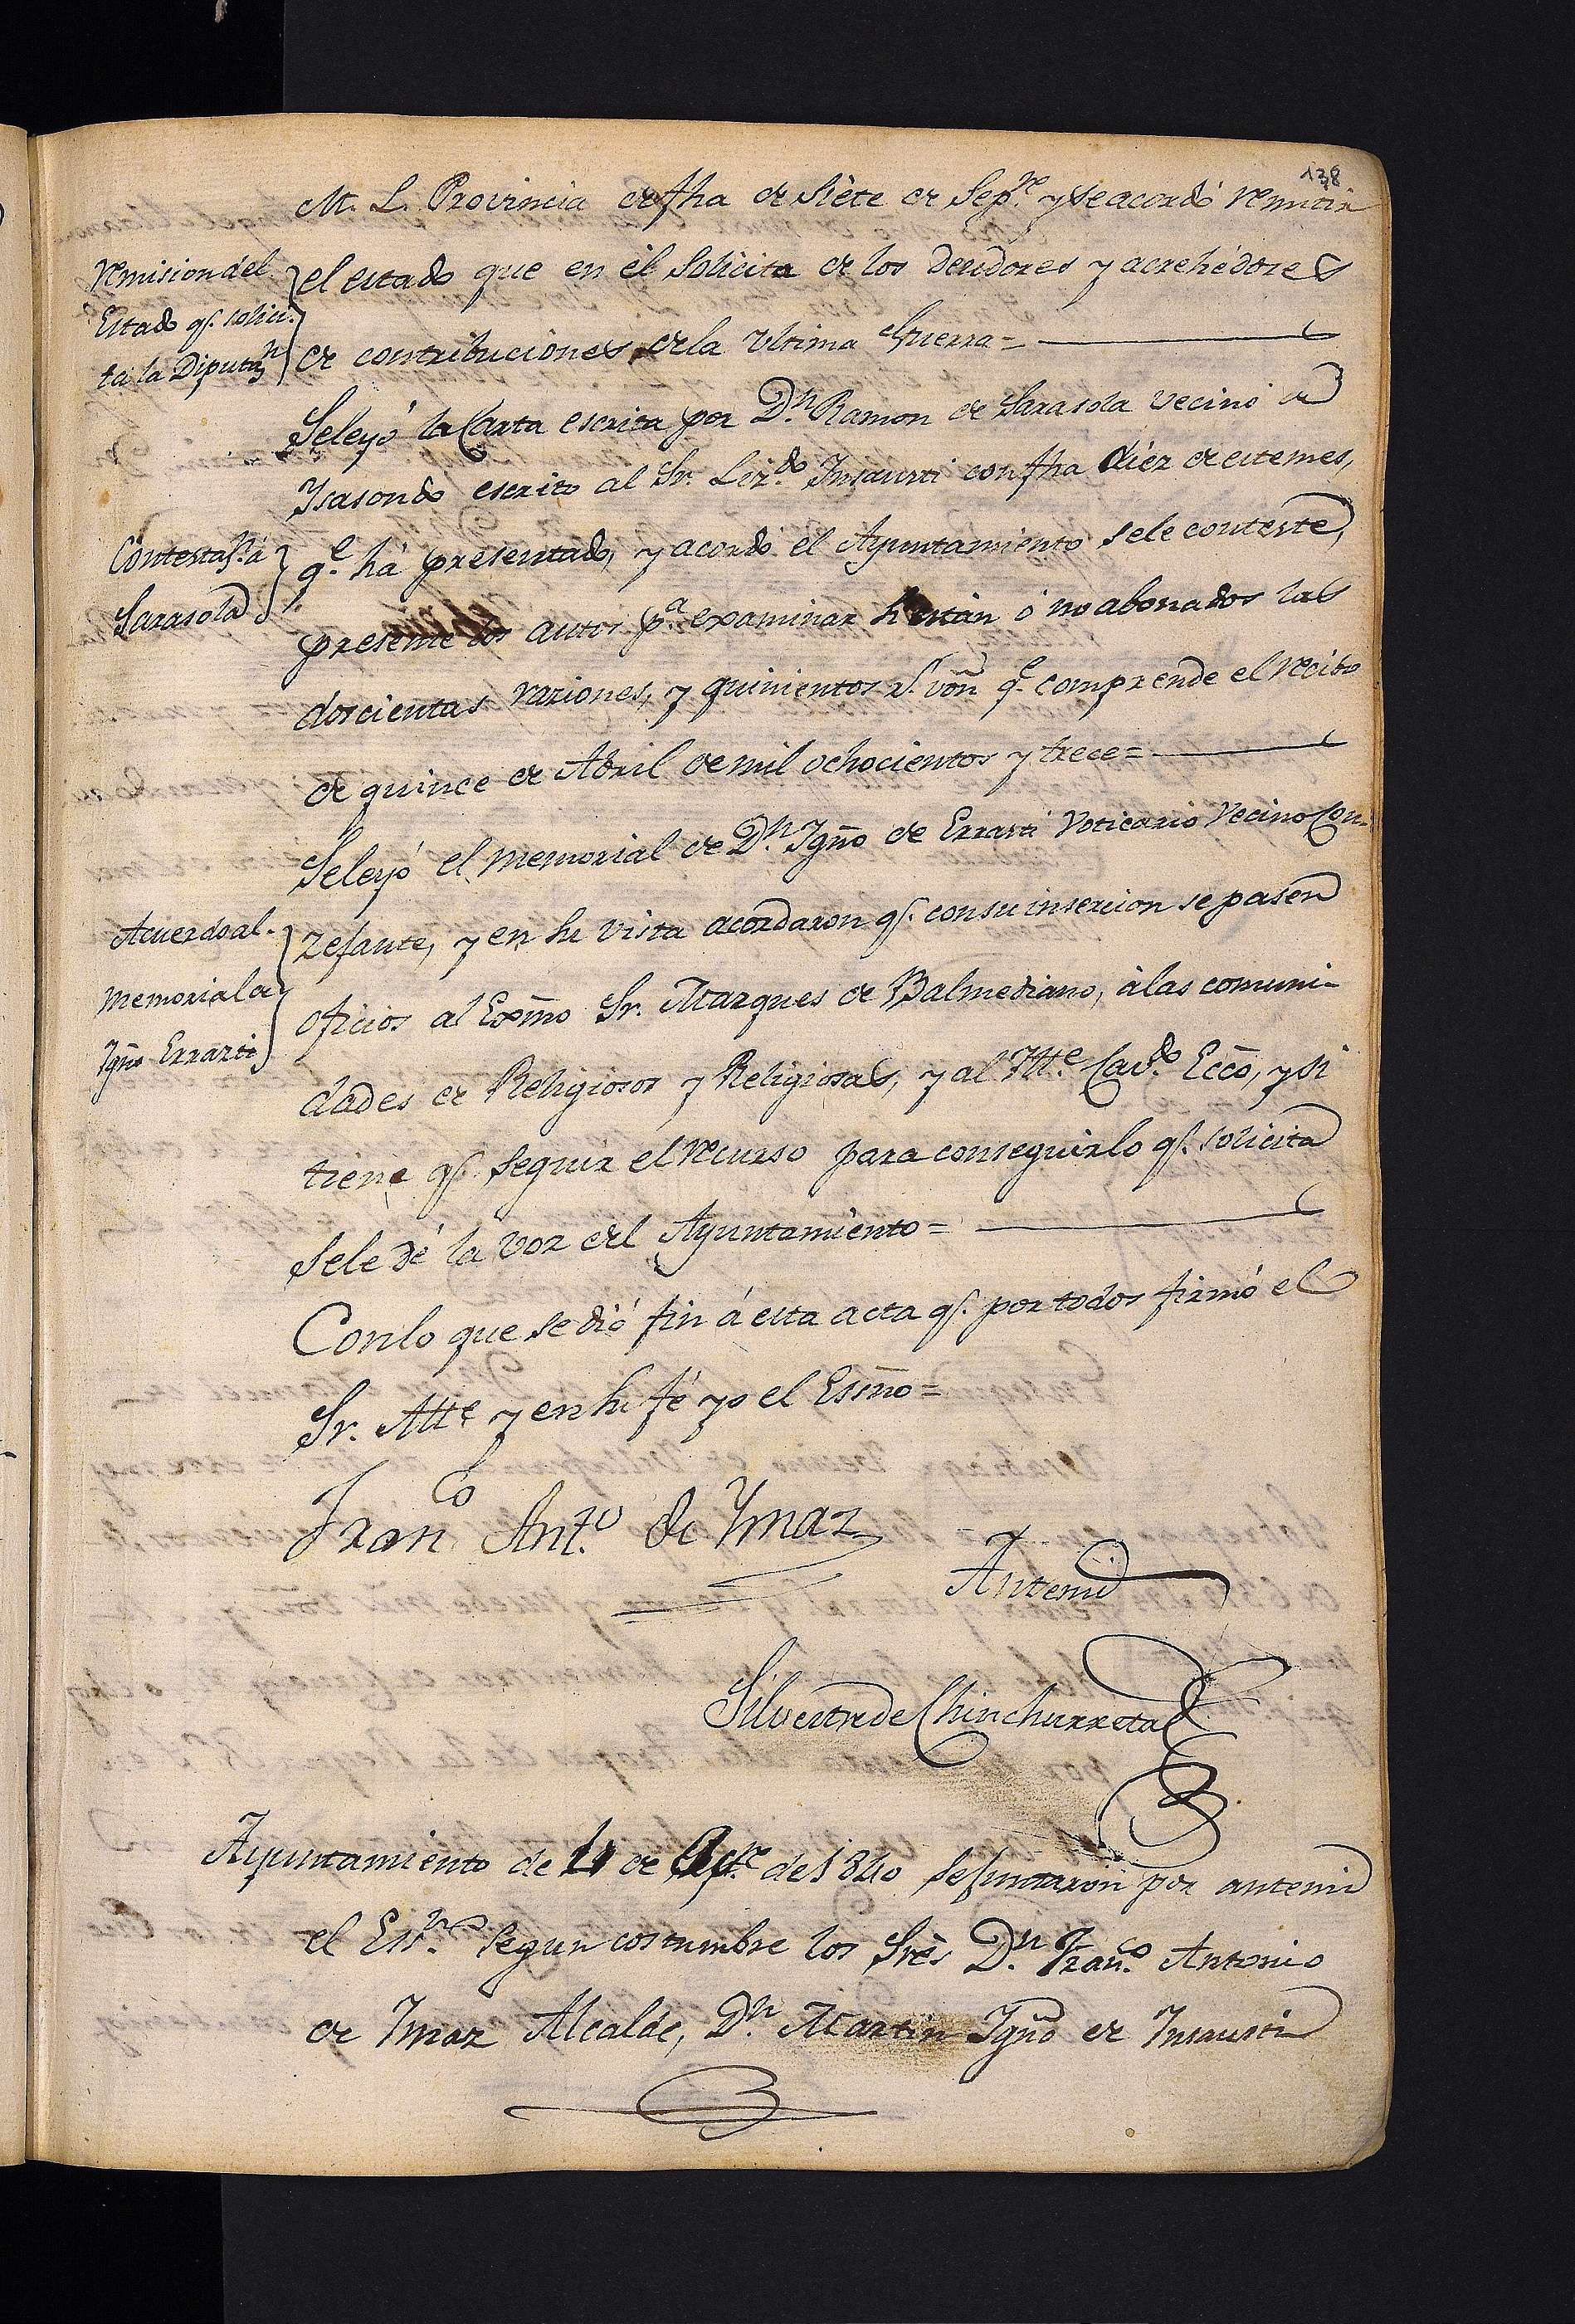 138
M. L. Provincia de fha de Siete de Sepre. y se acordó remitir
remision del
Estado qe. solici-
ta la Diputn
el estado que en él Solicita de los deudores y acrehédores
de contribuciones de la Ultima Guerra =
Se leyó la Carta escrita por Dn. Ramon de Sarasola vecino de
Ysasondo escrito al Sr. Lizdo. Insausti con fha diez de este mes,
Contestasn. á
Sarasola
qe. há presentado, y acordó el Ayuntamiento se le conteste,
presente los autos pa. examinar si están ó no abonados las
doscientas raziones, y quinientos rs. von qe. comprende el recibo
de quince de Abril de mil ochocientos y trece =
Se leyó el memorial de Dn. Ygño de Errasti Voticario Vecino Con-
Acuerdo al
memorial de
Ygño Errazti
zejante, y en su vista acordaron qe. con su insercion se pasen
oficios al Exmo Sr. Marques de Balmediano, á las comuni-
dades de Religiosos y Religiosas, y al Ytte. Cavdo. Ecco, y si
tiene qe. seguir el recurso para conseguirlo qe. solicita
se le dé la voz del Ayuntamiento =
Con lo que se dió fin á esta acta qe. por todos firmó el
Sr. Alle y en su fé yo el Essno =
Franco Anto. de Ymaz
Antemi
Silvestre de Chinchurreta
Ayuntamiento de de de 1840 se juntaron por antemi
el Essno. segun costumbre los Srēs Dn. Franco. Antonio
de Ymaz Alcalde, Dn. Martin Ygño de Insausti